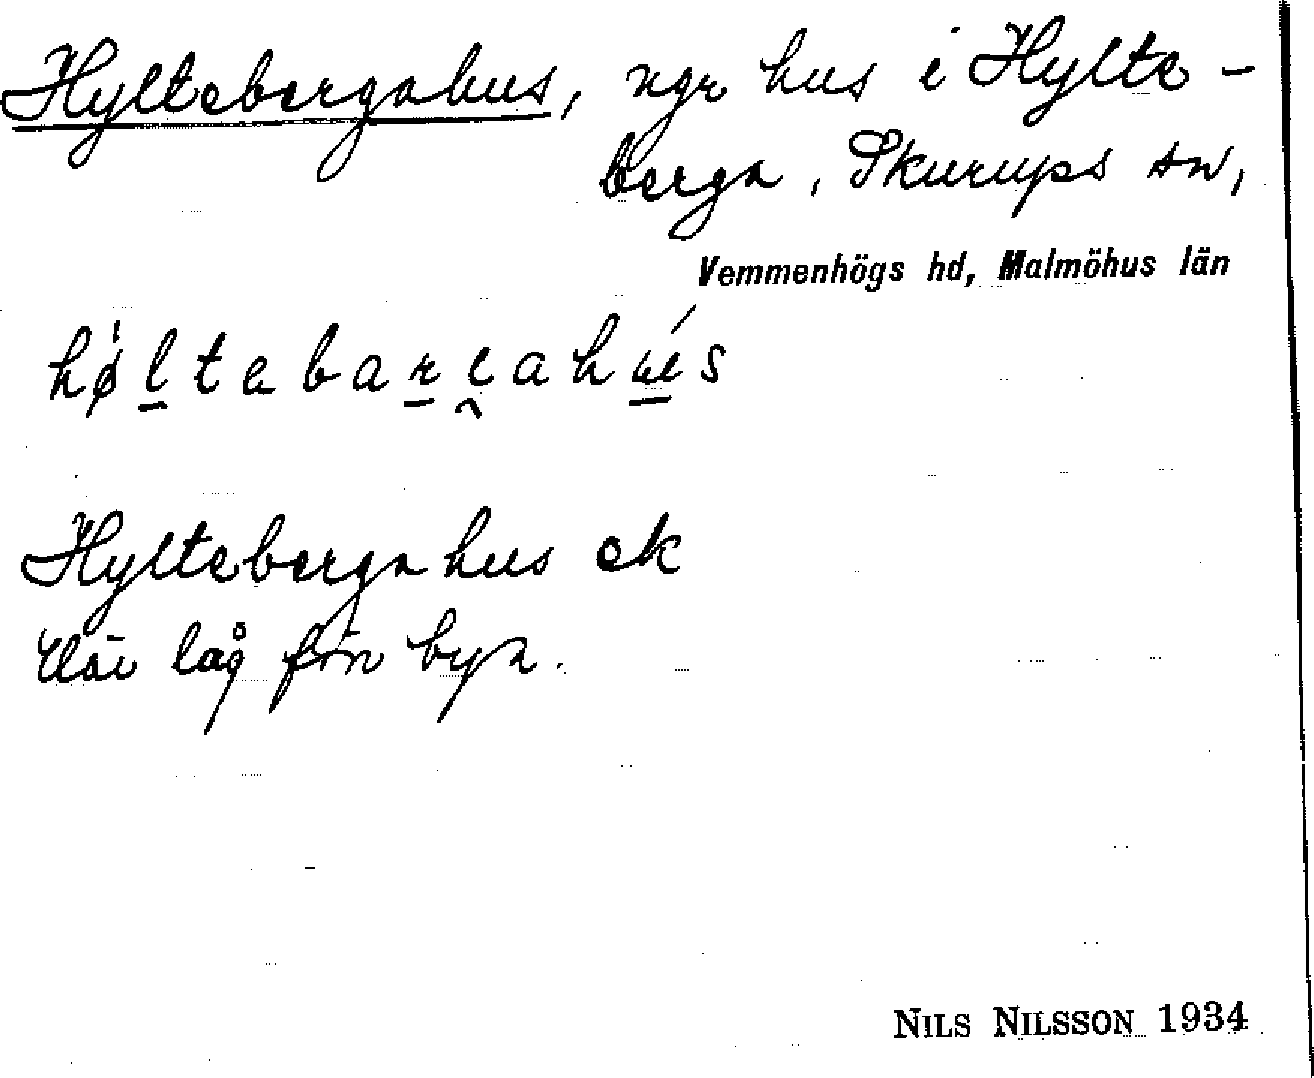 Hyltebergahus, ngr hus i Hylte-
berga, Skurups sn,
Vemmenhögs hd, Malmöhus län
høltebarɛahús
Hyltebergahus ek
Där låg förr bya.
NILS NILSSON 1934